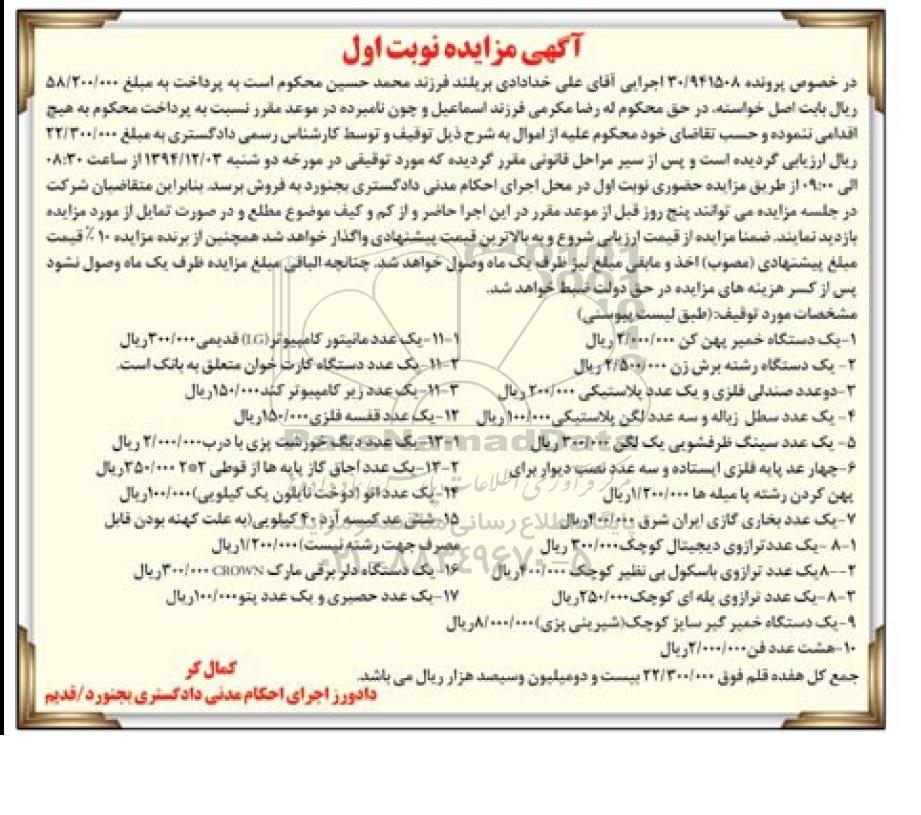 آگهی مزایده نوبت اول
در خصوص پرونده ۳۰/۹۴۱۵۰۸ اجرایی آقای علی خدادادی بربلند فرزند محمد حسین محکوم است به پرداخت به مبلغ ۵۸/۲۰۰/۰۰۰
ریال بابت اصل خواسته، در حق محکوم له رضا مکرمی فرزند اسماعیل و چون نامبرده در موعد مقرر نسبت به پرداخت محکوم به هیچ
اقدامی ننموده و حسب تقاضای خود محکوم علیه از اموال به شرح ذیل توقیف و توسط کارشناس رسمی دادگستری به مبلغ ۲۲/۳۰۰/۰۰۰
ریال ارزیابی گردیده است و پس از سیر مراحل قانونی مقرر گردیده که مورد توقیفی در مورخه دو شنبه ۱۳۹۴/۱۲/۰۳ از ساعت ۰۸:۳۰
الی ۰۹:۰۰ از طریق مزایده حضوری نوبت اول در محل اجرای احکام مدنی دادگستری بجنورد به فروش برسد. بنابراین متقاضیان شرکت
در جلسه مزایده می توانند پنج روز قبل از موعد مقرر در این اجرا حاضر و از کم و کیف موضوع مطلع و در صورت تمایل از مورد مزایده
بازدید نمایند. ضمنا مزایده از قیمت ارزیابی شروع و به بالاترین قیمت پیشنهادی واگذار خواهد شد همچنین از برنده مزایده ۱۰٪ قیمت
مبلغ پیشنهادی (مصوب) اخذ و مابقی مبلغ نیز ظرف یک ماه وصول خواهد شد. چنانچه الباقی مبلغ مزایده ظرف یک ماه وصول نشود
پس از کسر هزینه های مزایده در حق دولت ضبط خواهد شد.
مشخصات مورد توقیف:(طبق لیست پیوستی)
۱-یک دستگاه خمیر پهن کن ۲/۰۰۰/۰۰۰ ریال
۲- یک دستگاه رشته برش زن ۲/۵۰۰/۰۰۰ ریال
۳-دوعدد صندلی فلزی و یک عدد پلاستیکی ۲۰۰/۰۰۰ ریال
۴- یک عدد سطل زباله و سه عدد لگن پلاستیکی۱۰۰/۰۰۰ ریال
۵- یک عدد سینگ ظرفشویی یک لگن ۳۰۰/۰۰۰ ریال
۶-چهار عد پایه فلزی ایستاده و سه عدد نصب دیوار برای
پهن کردن رشته با میله ها ۱/۲۰۰/۰۰۰ریال
۷-یک عدد بخاری گازی ایران شرق ۴۰۰/۰۰۰ریال
۸-۱ -یک عددترازوی دیجیتال کوچک۳۰۰/۰۰۰ ریال
۸--۲یک عدد ترازوی باسکول بی نظیر کوچک ۴۰۰/۰۰۰ریال
۸-۳-یک عدد ترازوی پله ای کوچک۲۵۰/۰۰۰ریال
۹-یک دستگاه خمیر گیر سایز کوچک(شیرینی پزی)۸/۰۰۰/۰۰۰ریال
۱۰-هشت عدد فن۲/۰۰۰/۰۰۰ریال
۱۱-۱-یک عدد مانیتور کامپیوتر(LG) قدیمی۳۰۰/۰۰۰ریال
۱۱-۲ -یک عدد دستگاه کارت خوان متعلق به بانک است.
۱۱-۳-یک عدد زیر کامپیوتر کند۱۵۰/۰۰۰ریال
۱۲-یک عدد قفسه فلزی۱۵۰/۰۰۰ریال
۱۳-۱-یک عدد دیگ خورشت پزی با درب۲/۰۰۰/۰۰۰ ریال
۱۳-۲-یک عدد اجاق گاز پایه ها از قوطی ۲*۲ ۲۵۰/۰۰۰ریال
۱۴-یک عدد اتو (دوخت نایلون یک کیلویی)۱۰۰/۰۰۰ریال
۱۵-شش عد کیسه آرد ۴۰ کیلویی(به علت کهنه بودن قابل
مصرف جهت رشته نیست)۱/۲۰۰/۰۰۰ریال
۱۶- یک دستگاه دلر برقی مارک CROWN ۳۰۰/۰۰۰ریال
۱۷-یک عدد حصیری و یک عدد پتو۱۰۰/۰۰۰ریال
جمع کل هفده قلم فوق ۲۲/۳۰۰/۰۰۰ بیست و دومیلیون وسیصد هزار ریال می باشد.
کمال کر
دادورز اجرای احکام مدنی دادگستری بجنورد /قدیم
ParsNamadData
۰۲۱-۸۸۳۴۹۶۷۰-۵